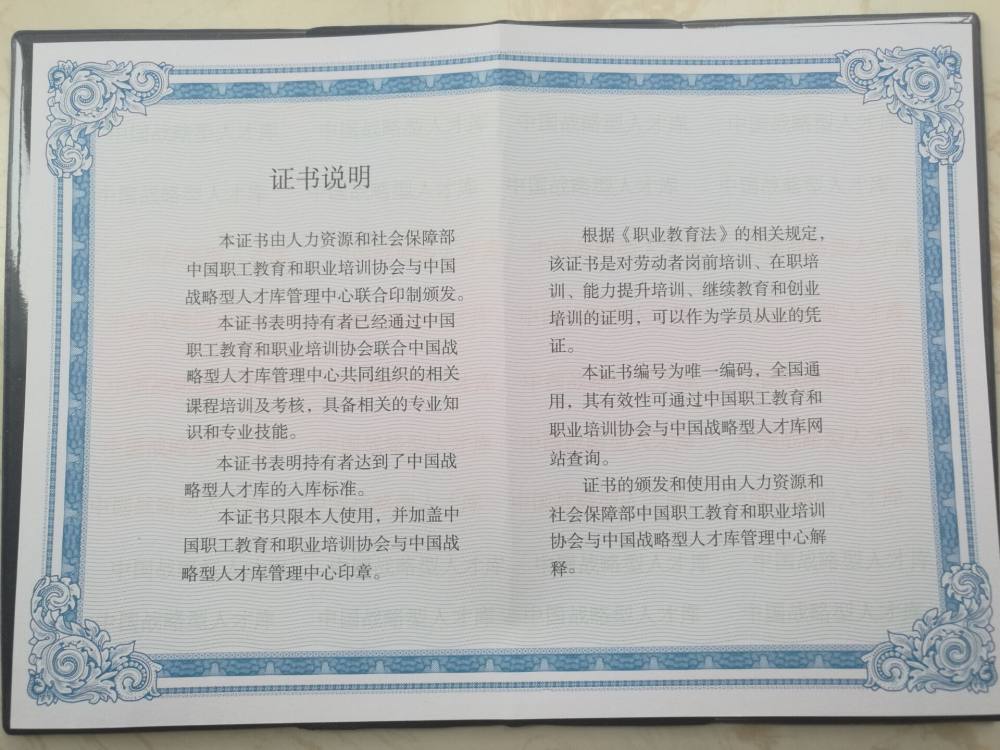 证书说明
本证书由人力资源和社会保障部
中国职工教育和职业培训协会与中国
战略型人才库管理中心联合印制颁发。
本证书表明持有者已经通过中国
职工教育和职业培训协会联合中国战
略型人才库管理中心共同组织的相关
课程培训及考核，具备相关的专业知
识和专业技能。
本证书表明持有者达到了中国战
略型人才库的入库标准。
本证书只限本人使用，并加盖中
国职工教育和职业培训协会与中国战
略型人才库管理中心印章。
根据《职业教育法》的相关规定，
该证书是对劳动者岗前培训、在职培
训、能力提升培训、继续教育和创业
培训的证明，可以作为学员从业的凭
证。
本证书编号为唯一编码，全国通
用，其有效性可通过中国职工教育和
职业培训协会与中国战略型人才库网
站查询。
证书的颁发和使用由人力资源和
社会保障部中国职工教育和职业培训
协会与中国战略型人才库管理中心解
释。